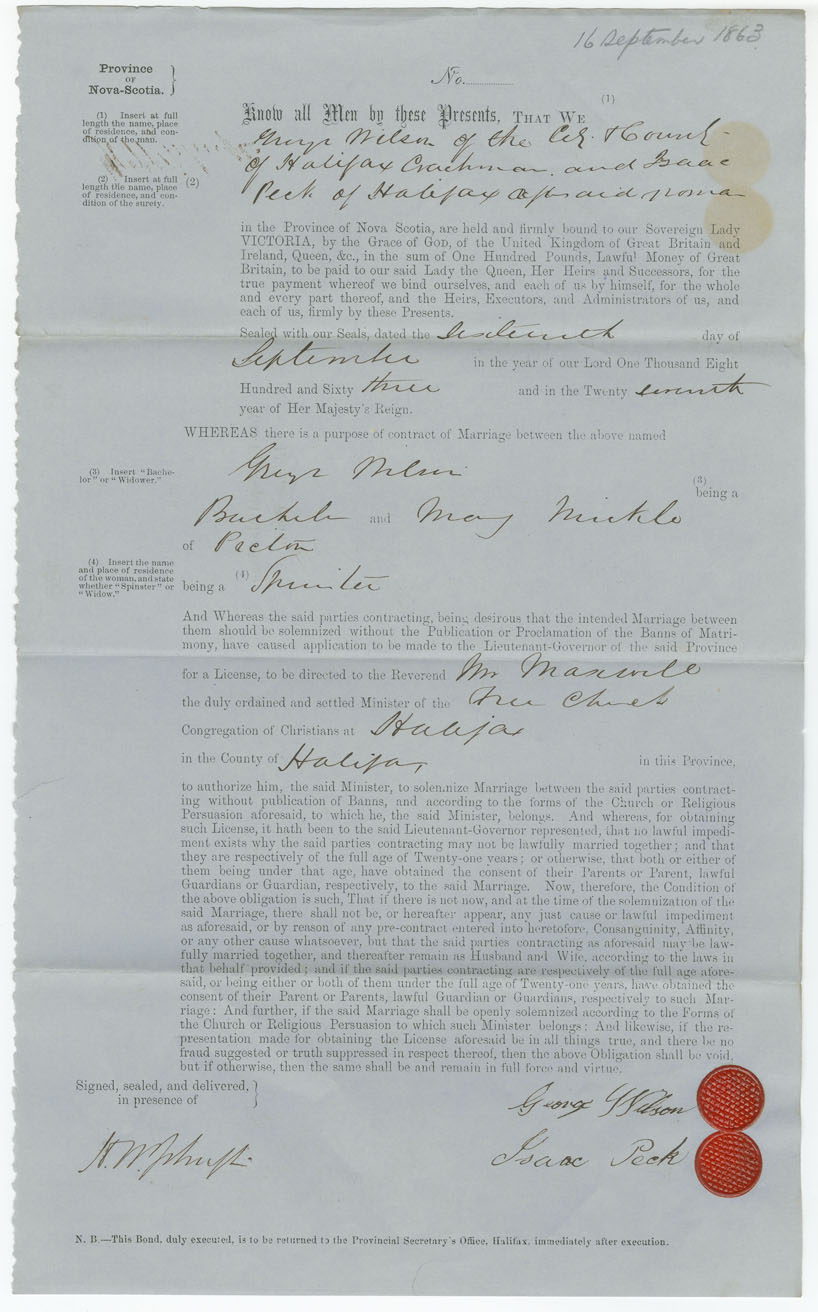 16 September 1863
Province
OF
Nova-Scotia.
No.
(1) Insert at full
length the name, place
of residence, and con-
dition of the man.
(1)
Know all Men by these Presents, THAT WE
George Wilson of the City & County
of Halifax Coachman, and Isaac
(2) Insert at full
length the name, place
of residence, and con-
dition of the surety.
(2)
Peck of Halifax aforesaid
in the Province of Nova Scotia, are held and firmly bound to our Sovereign Lady
VICTORIA, by the Grace of GOD, of the United Kingdom of Great Britain and
Ireland, Queen, &c., in the sum of One Hundred Pounds, Lawful Money of Great
Britain, to be paid to our said Lady the Queen, Her Heirs and Successors, for the
true payment whereof we bind ourselves, and each of us by himself, for the whole
and every part thereof, and the Heirs, Executors, and Administrators of us, and
each of us, firmly by these Presents.
Sealed with our Seals, dated the sixteenth day of
September in the year of our Lord One Thousand Eight
Hundred and Sixty three and in the Twenty seventh
year of Her Majesty's Reign.
WHEREAS there is a purpose of contract of Marriage between the above named
(3) Insert "Bache-
lor" or "Widower."
George Wilson
(3)
being a
Bachelor and Mary Mickle
of Pictou
(4) Insert the name
and place of residence
of the woman, and state
whether "Spinster" or
"Widow."
being a (4) Spinster
And Whereas the said parties contracting, being desirous that the intended Marriage between
them should be solemnized without the Publication or Proclamation of the Banns of Matri-
mony, have caused application to be made to the Lieutenant-Governor of the said Province
for a License, to be directed to the Reverend Mr Maxwell
the duly ordained and settled Minister of the Free Church
Congregation of Christians at Halifax
in the County of Halifax, in this Province,
to authorize him, the said Minister, to solemnize Marriage between the said parties contract-
ing without publication of Banns, and according to the forms of the Church or Religious
Persuasion aforesaid, to which he, the said Minister, belongs. And whereas, for obtaining
such License, it hath been to the said Lieutenant-Governor represented, that no lawful impedi-
ment exists why the said parties contracting may not be lawfully married together; and that
they are respectively of the full age of Twenty-one years; or otherwise, that both or either of
them being under that age, have obtained the consent of their Parents or Parent, lawful
Guardians or Guardian, respectively, to the said Marriage. Now, therefore, the Condition of
the above obligation is such, That if there is not now, and at the time of the solemnization of the
said Marriage, there shall not be, or hereafter appear, any just cause or lawful impediment
as aforesaid, or by reason of any pre-contract entered into heretofore, Consanguinity, Affinity,
or any other cause whatsoever, but that the said parties contracting as aforesaid may be law-
fully married together, and thereafter remain as Husband and Wife, according to the laws in
that behalf provided; and if the said parties contracting are respectively of the full age afore-
said, or being either or both of them under the full age of Twenty-one years, have obtained the
consent of their Parent or Parents, lawful Guardian or Guardians, respectively to such Mar-
riage: And further, if the said Marriage shall be openly solemnized according to the Forms of
the Church or Religious Persuasion to which such Minister belongs: And likewise, if the re-
presentation made for obtaining the License aforesaid be in all things true, and there be no
fraud suggested or truth suppressed in respect thereof, then the above Obligation shall be void,
but if otherwise, then the same shall be and remain in full force and virtue.
Signed, sealed, and delivered,
in presence of
George Wilson
Isaac Peck
N. B.—This Bond, duly executed, is to be returned to the Provincial Secretary's Office, Halifax, immediately after execution.